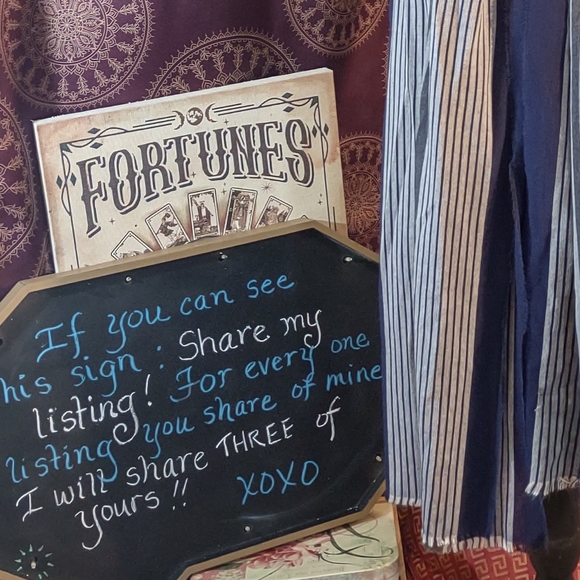 FORTUNES
If you can see
his sign: Share my
listing! For every one
listing you share of mine
I will share THREE of
yours!!
XOXO